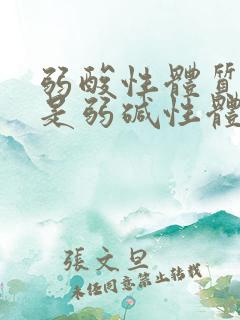 弱酸性體質
是弱碱性體
張文旦
未經同意禁止轉載